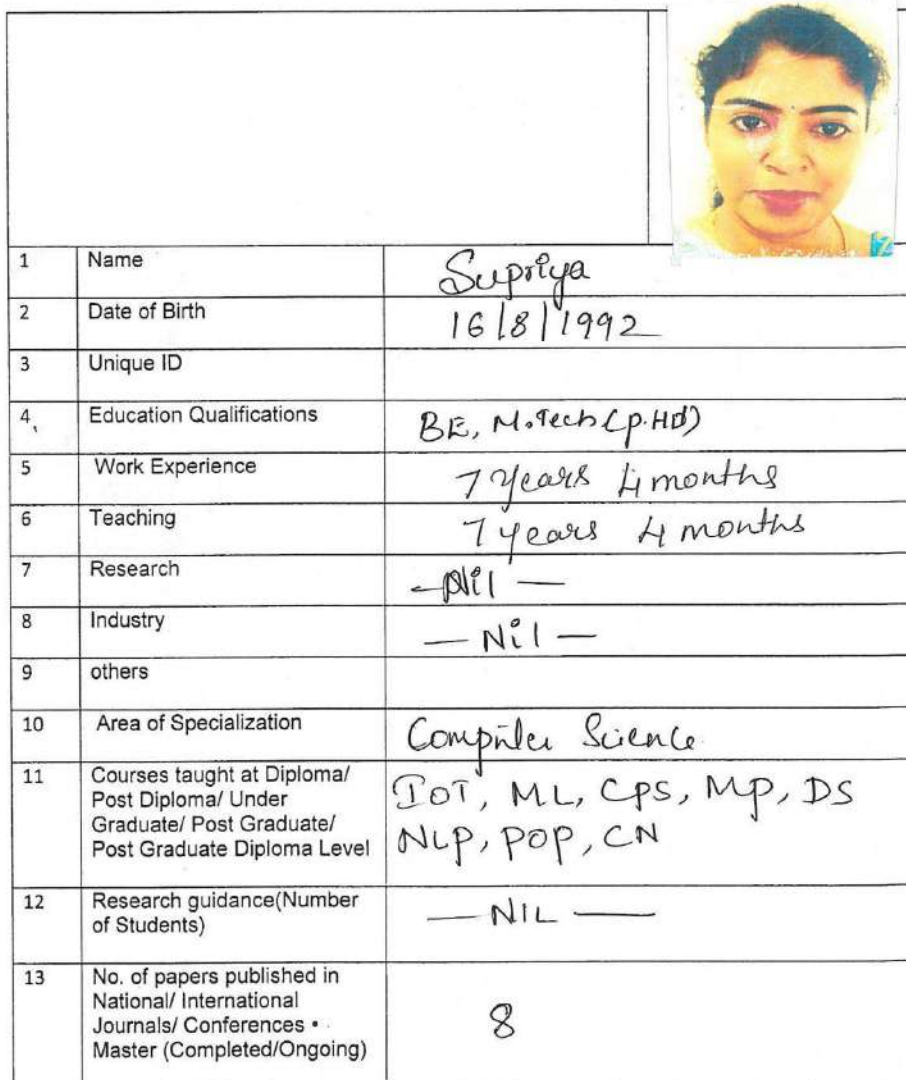 1 Name Supriya
2 Date of Birth 16/8/1992
3 Unique ID
4, Education Qualifications BE, M.Tech (p.HD)
5 Work Experience 7 years 4 months
6 Teaching 7 years 4 months
7 Research - Nil -
8 Industry - Nil -
9 others
10 Area of Specialization Computer Science
11 Courses taught at Diploma/ IOT, ML, CPS, MP, DS
Post Diploma/ Under
Graduate/ Post Graduate/ NLP, POP, CN
Post Graduate Diploma Level
12 Research guidance(Number - NIL -
of Students)
13 No. of papers published in
National/ International
Journals/ Conferences • 8
Master (Completed/Ongoing)